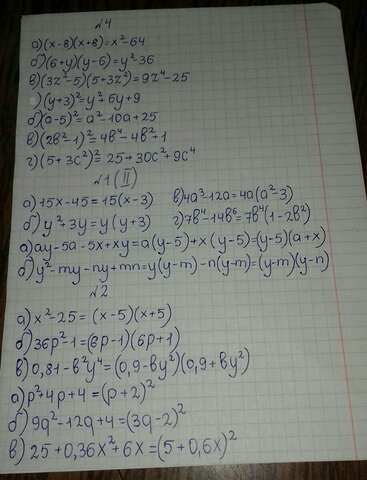 №4
а)(x-8)(x+8)=x²-64
б)(6+y)(y-6)=y²-36
в)(3z²-5)(5+3z²)=9z⁴-25
)(y+3)²=y²+6y+9
б)(a-5)²=a²-10a+25
в)(2b²-1)²=4b⁴-4b²+1
г)(5+3c²)²=25+30c²+9c⁴
№1(II)
а)15x-45=15(x-3) в)4a³-12a=4a(a²-3)
б)y²+3y=y(y+3) г)7b⁴-14b⁶=7b⁴(1-2b²)
а)ay-5a-5x+xy=a(y-5)+x(y-5)=(y-5)(a+x)
б)y²-my-ny+mn=y(y-m)-n(y-m)=(y-m)(y-n)
№2
а)x²-25=(x-5)(x+5)
б)36p²-1=(6p-1)(6p+1)
в)0,81-b²y⁴=(0,9-by²)(0,9+by²)
а)p²+4p+4=(p+2)²
б)9q²-12q+4=(3q-2)²
в)25+0,36x²+6x=(5+0,6x)²